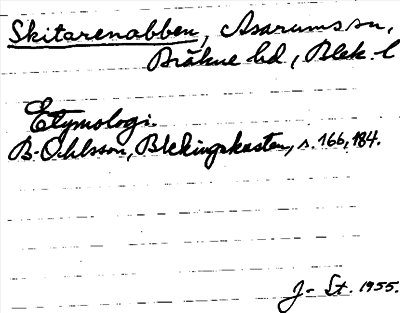 Skitarenabben, Asarums sn,
Bräkne hd, Blek. l
Etymologi.
B. Ohlsson, Blekingskusten, s. 166, 184.
J-St. 1955.